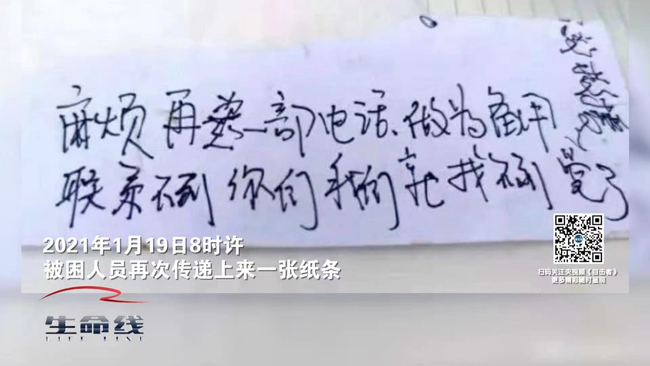 麻烦再一部电话、做为备用
联系不到你们我们就找不到
2021年1月19日8时许
被困人员再次传递上来一张纸条
生命线
LIFE LINE
扫码关注央视频《目击者》
更多精彩随时